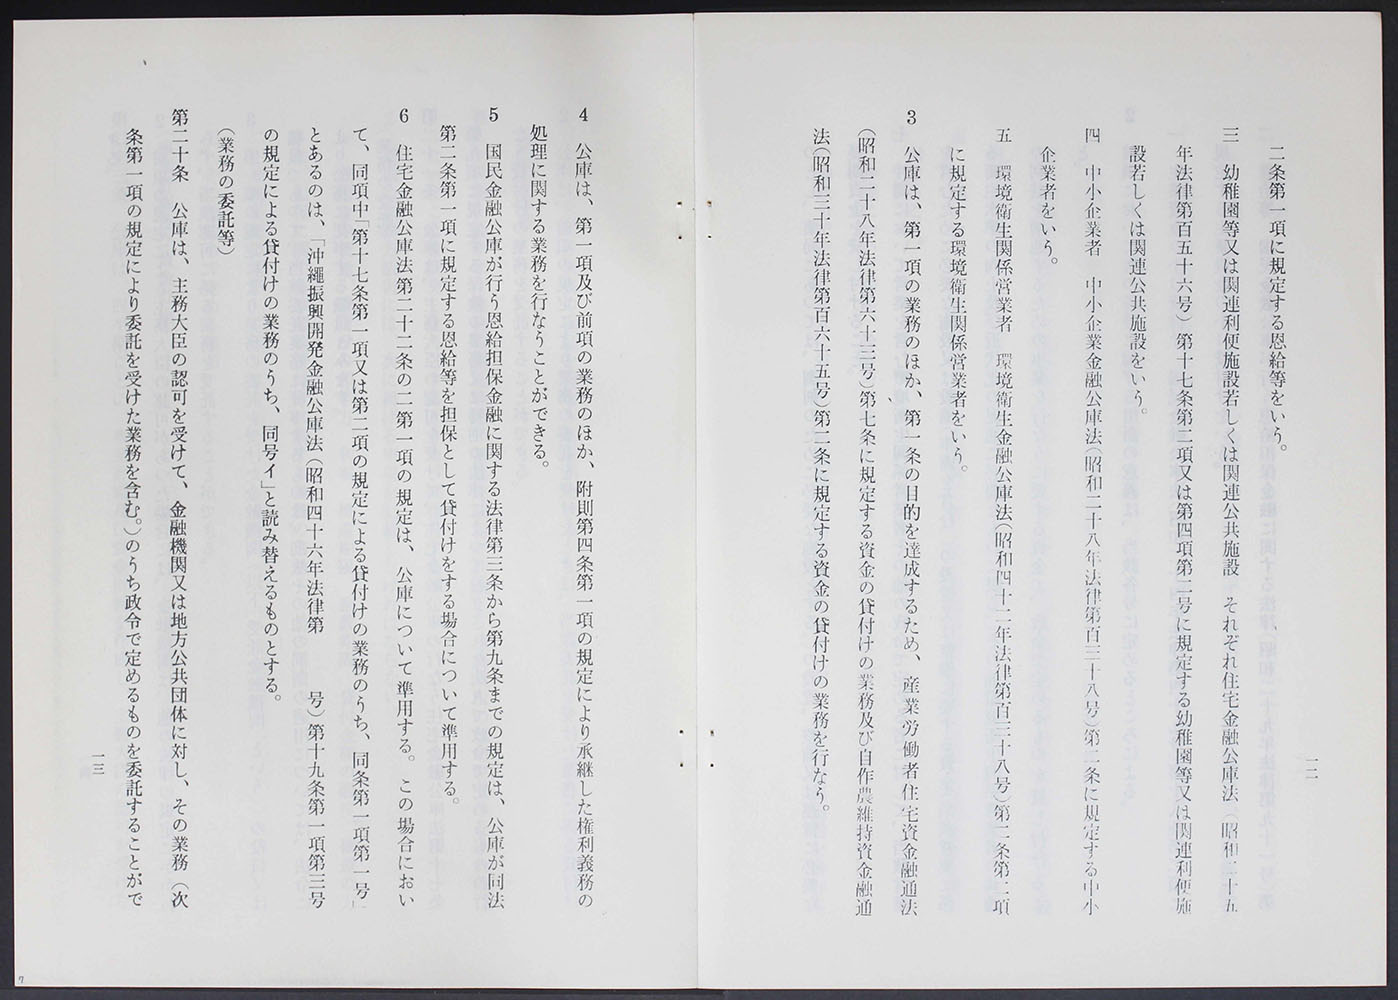 二条第一項に規定する恩給等をいう。
三 幼稚園等又は関連利便施設若しくは関連公共施設 それぞれ住宅金融公庫法（昭和二十五
年法律第百五十六号）第十七条第二項又は第四項第二号に規定する幼稚園等又は関連利便施
設若しくは関連公共施設をいう。
四 中小企業者 中小企業金融公庫法（昭和二十八年法律第百三十八号）第二条に規定する中小
企業者をいう。
五 環境衛生関係営業者 環境衛生金融公庫法（昭和四十二年法律第百三十八号）第二条第二項
に規定する環境衛生関係営業者をいう。
3 公庫は、第一項の業務のほか、第一条の目的を達成するため、産業労働者住宅資金融通法
（昭和二十八年法律第六十三号）第七条に規定する資金の貸付けの業務及び自作農維持資金融通
法（昭和三十年法律第百六十五号）第二条に規定する資金の貸付けの業務を行なう。
一二
4 公庫は、第一項及び前項の業務のほか、附則第四条第一項の規定により承継した権利義務の
処理に関する業務を行なうことができる。
5 国民金融公庫が行う恩給担保金融に関する法律第三条から第九条までの規定は、公庫が同法
第二条第一項に規定する恩給等を担保として貸付けをする場合について準用する。
6 住宅金融公庫法第二十二条の二第一項の規定は、公庫について準用する。この場合におい
て、同項中「第十七条第一項又は第二項の規定による貸付けの業務のうち、同条第一項第一号」
とあるのは、「沖縄振興開発金融公庫法（昭和四十六年法律第　　号）第十九条第一項第三号
の規定による貸付けの業務のうち、同号イ」と読み替えるものとする。
（業務の委託等）
第二十条 公庫は、主務大臣の認可を受けて、金融機関又は地方公共団体に対し、その業務（次
条第一項の規定により委託を受けた業務を含む。）のうち政令で定めるものを委託することがで
一三
7